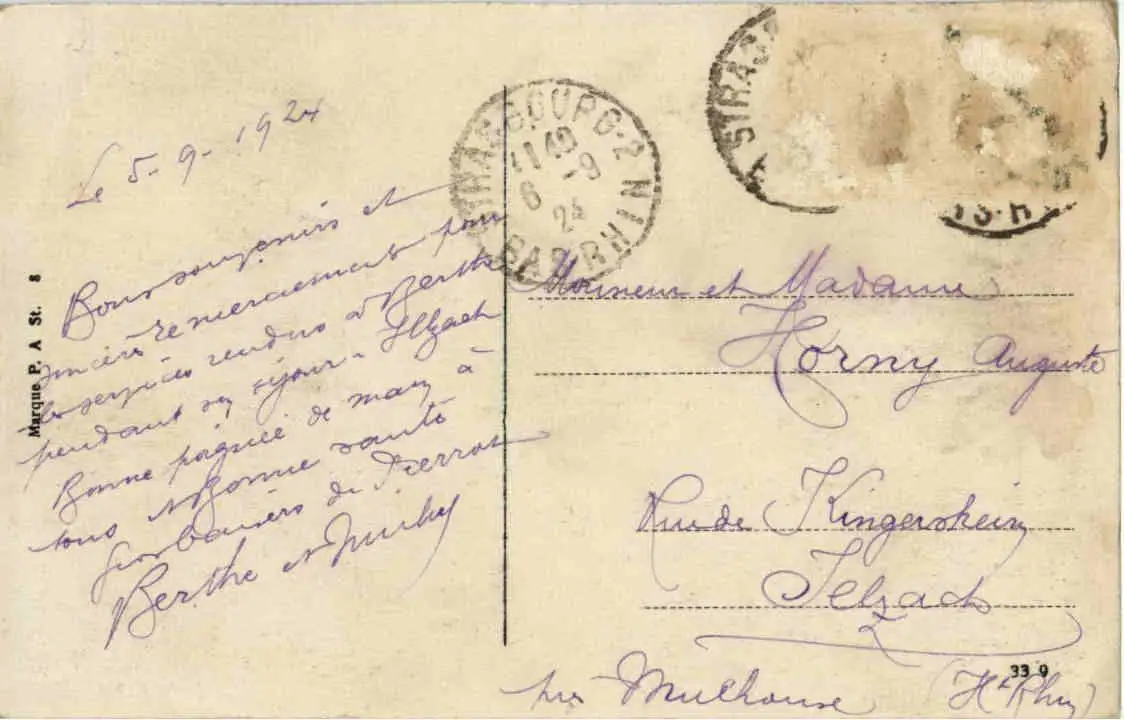 Le 5-9-1924
Bons souvenirs et
sincère remerciement pour
les services rendus à Berthe
pendant son séjour à Illzach
Bonne poignée de main à
tous et Bonne santé
Gros baisers de Pierrot
Berthe et
Marque P. A St. 8
STRASBOURG-2
11 40
6 -9
24
BAS-RHIN
STRAS
Monsieur et Madame
Horny Auguste
Rue de Kingersheim
Ilzach
près Mulhouse (Ht Rhin)
33 9